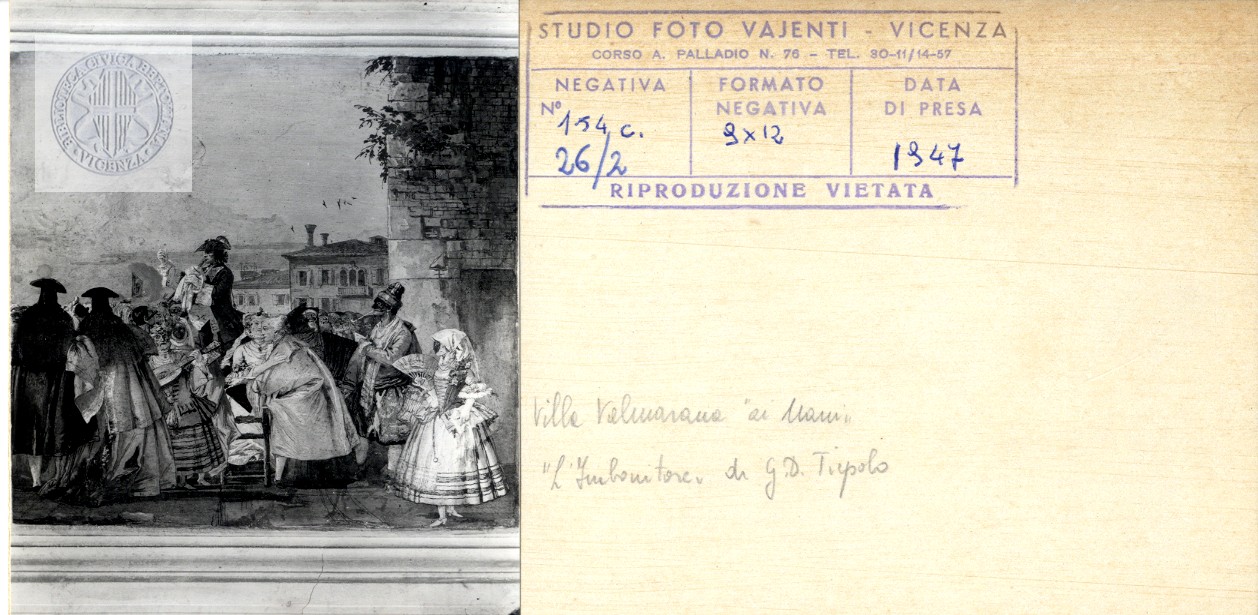 BIBLIOTECA CIVICA BERTOLIANA
· VICENZA ·
STUDIO FOTO VAJENTI - VICENZA
CORSO A. PALLADIO N. 76 - TEL. 30-11/14-57
NEGATIVA
Nº 154 c.
26/2
FORMATO
NEGATIVA
9x12
DATA
DI PRESA
1947
RIPRODUZIONE VIETATA
Villa Valmarana "ai Nani"
"L'Imbonitore" di G.D. Tiepolo